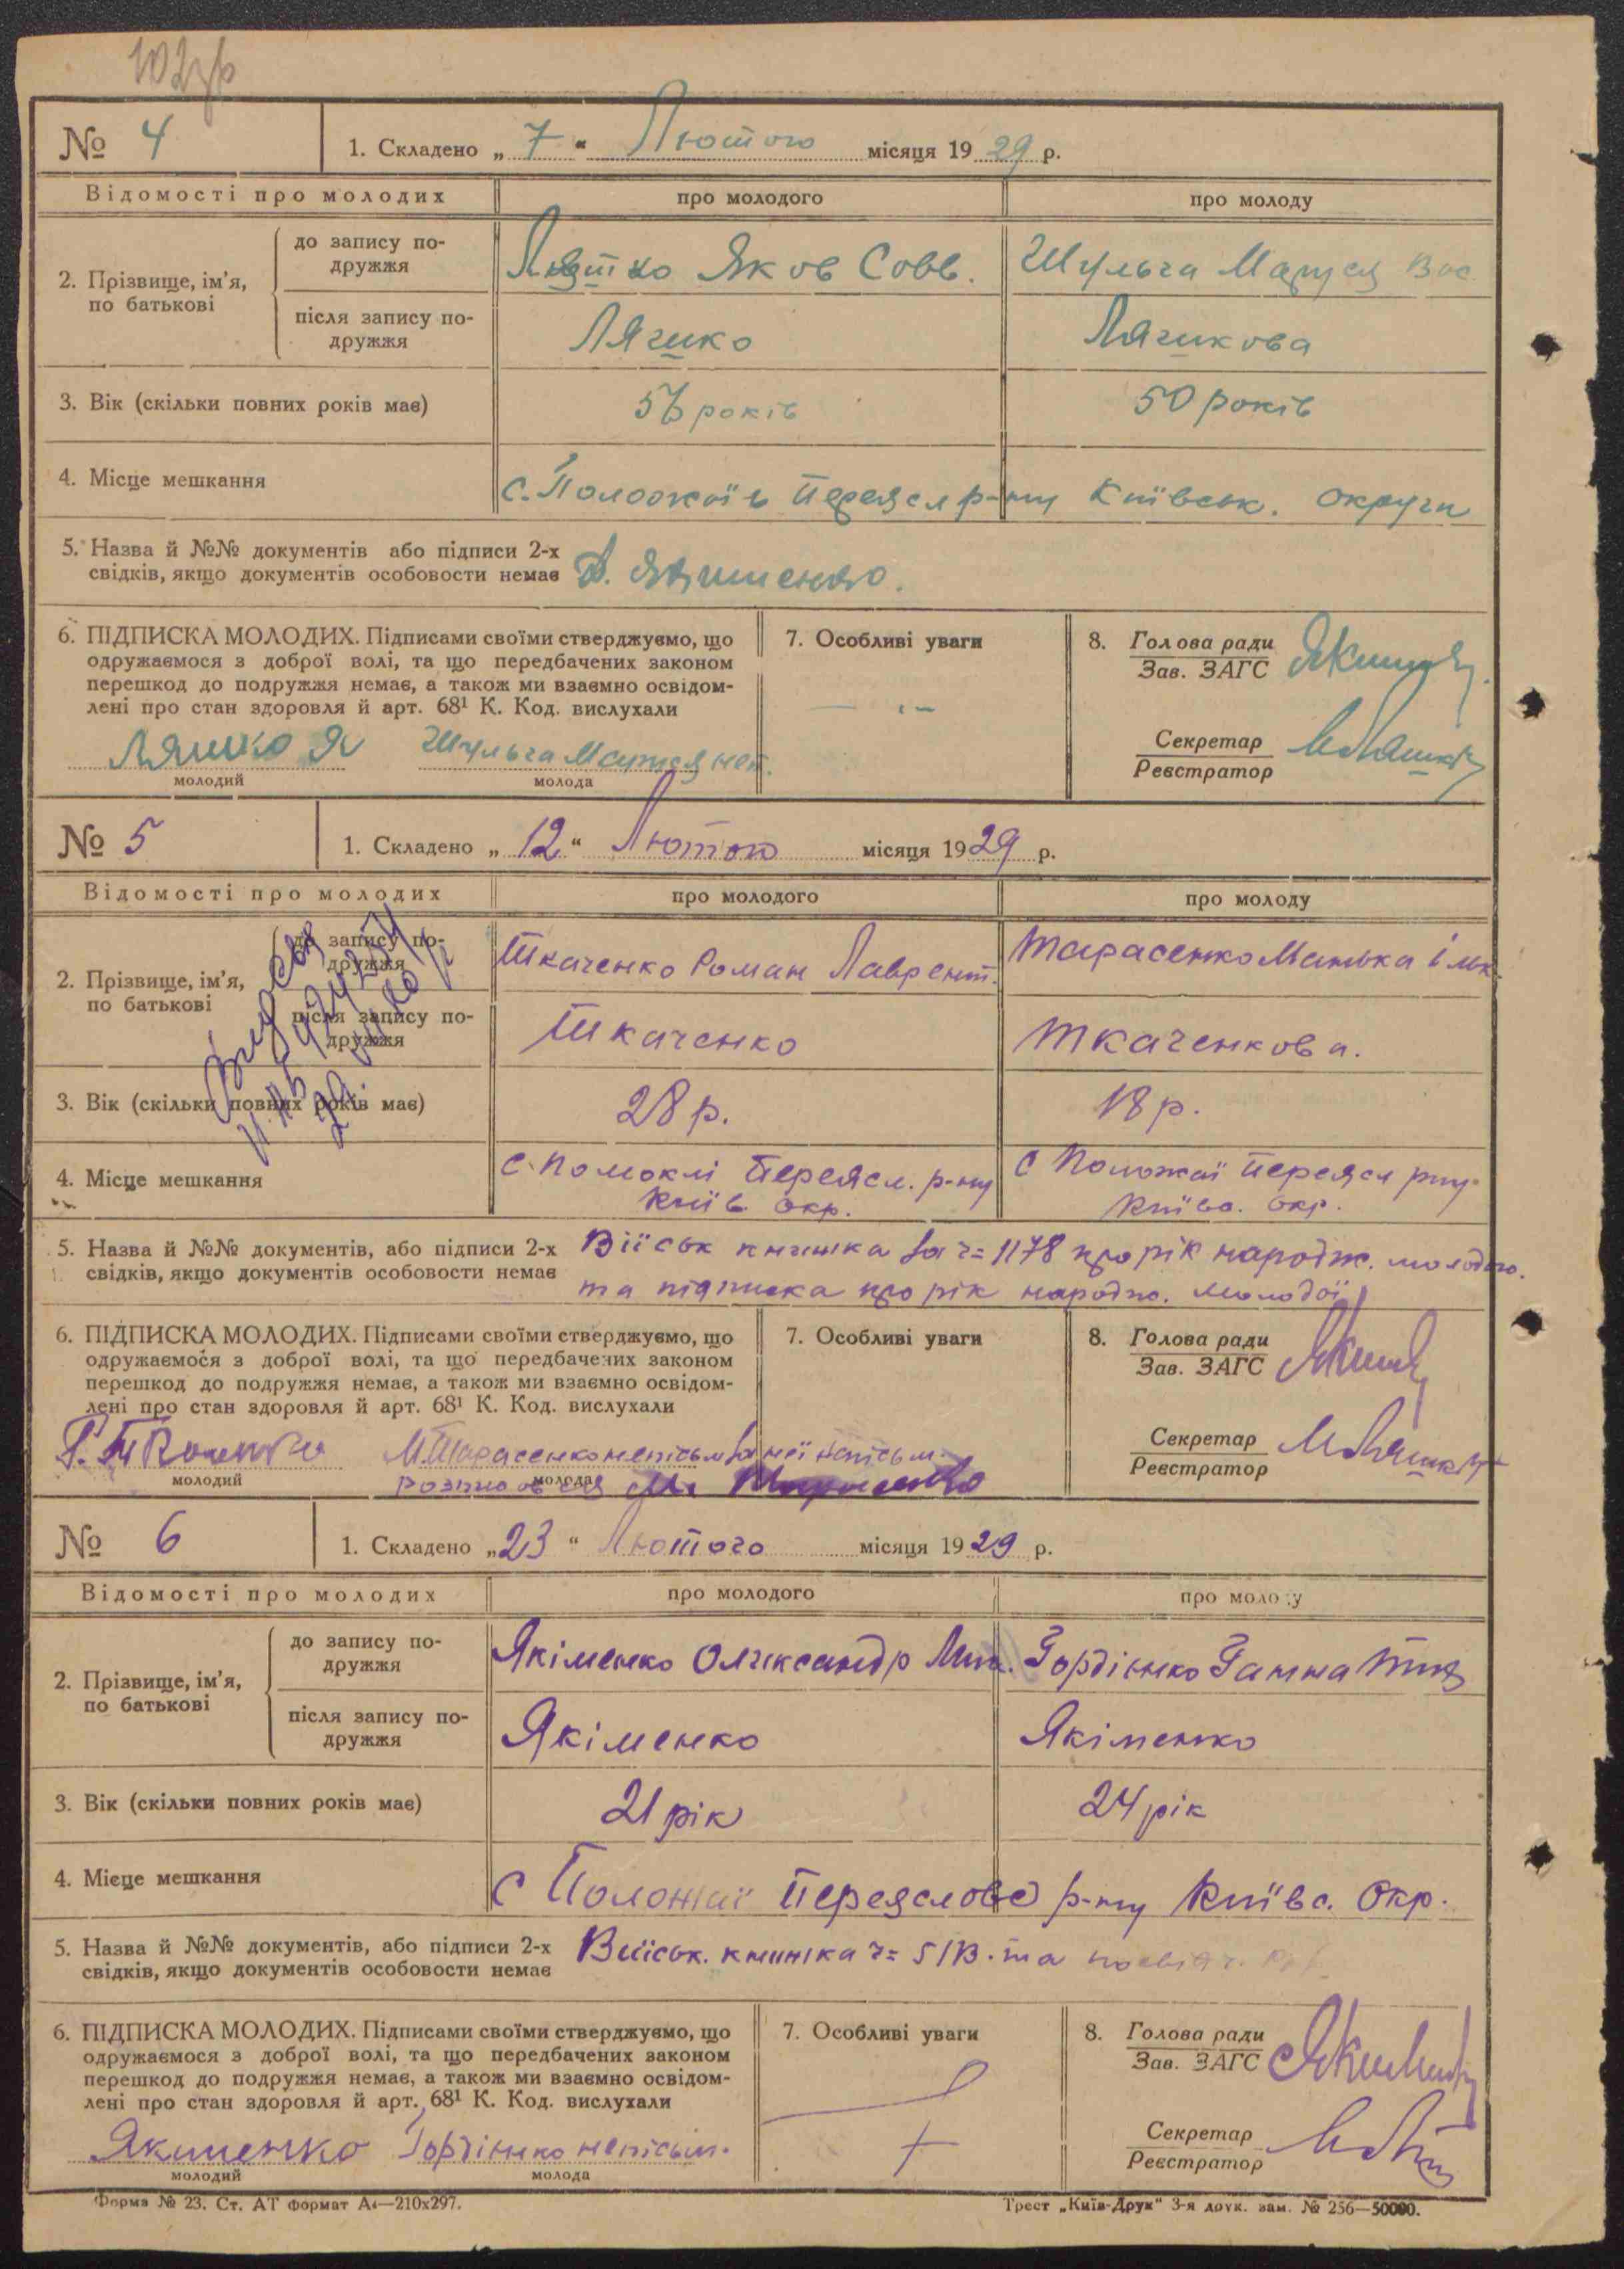 № 4
1. Складено „7“ Лютого місяця 1929 р.
Відомості про молодих
про молодого
про молоду
2. Прізвище, ім'я, по батькові
до запису подружжя
Яков Совв.
Шульга Маруся Вас
після запису подружжя
Ляшко
Ляшкова
3. Вік (скільки повних років має)
років
50 років
4. Місце мешкання
с. Положаїв Переясл р-ну Київськ. округи
5. Назва й №№ документів або підписи 2-х
свідків, якщо документів особовости немає
6. ПІДПИСКА МОЛОДИХ. Підписами своїми стверджуємо, що
одружаємося з доброї волі, та що передбачених законом
перешкод до подружжя немає, а також ми взаємно освідом-
лені про стан здоровля й арт. 68¹ К. Код. вислухали
Ляшко Я
Шульга Маруся неп.
молодий
молода
7. Особливі уваги
8. Голова ради
Зав. ЗАГС
Секретар
Реєстратор
№ 5
1. Складено „12“ Лютого місяця 1929 р.
Відомості про молодих
про молодого
про молоду
2. Прізвище, ім'я, по батькові
до запису подружжя
Ткаченко Роман Лаврент.
Тарасенко Манька Ільк.
після запису подружжя
Ткаченко
Ткаченкова.
3. Вік (скільки повних років має)
28 р.
18 р.
4. Місце мешкання
с. Помоклі Переясл. р-ну
Київ. окр.
с Положаї Переясл рну.
Київс. Окр.
5. Назва й №№ документів, або підписи 2-х
свідків, якщо документів особовости немає
Військ книшка за ч= 1178 про рік народж. молодого.
та підписка про рік народж. молодої
6. ПІДПИСКА МОЛОДИХ. Підписами своїми стверджуємо, що
одружаємося з доброї волі, та що передбачених законом
перешкод до подружжя немає, а також ми взаємно освідом-
лені про стан здоровля й арт. 68¹ К. Код. вислухали
Р. Ткаченко
М Тарасенко непісьм за неї
молодий
молода
7. Особливі уваги
8. Голова ради
Зав. ЗАГС
Секретар
Реєстратор
№ 6
1. Складено „23“ Лютого місяця 1929 р.
Відомості про молодих
про молодого
про молоду
2. Прізвище, ім'я, по батькові
до запису подружжя
Якіменко Олександр
Гордієнко Ганна
після запису подружжя
Якіменко
Якіменко
3. Вік (скільки повних років має)
21 рік
24 рік
4. Місце мешкання
с Положаї Переясловс р-ну Київс. Окр.
5. Назва й №№ документів, або підписи 2-х
свідків, якщо документів особовости немає
Військ. книшка ч= 51В. та
6. ПІДПИСКА МОЛОДИХ. Підписами своїми стверджуємо, що
одружаємося з доброї волі, та що передбачених законом
перешкод до подружжя немає, а також ми взаємно освідом-
лені про стан здоровля й арт. 68¹ К. Код. вислухали
Якименко
Гордієнко непісьм.
молодий
молода
7. Особливі уваги
8. Голова ради
Зав. ЗАГС
Секретар
Реєстратор
Форма № 23. Ст. АТ формат А4—210х297.
Трест „Київ-Друк“ 3-я друк. зам. № 256—50000.